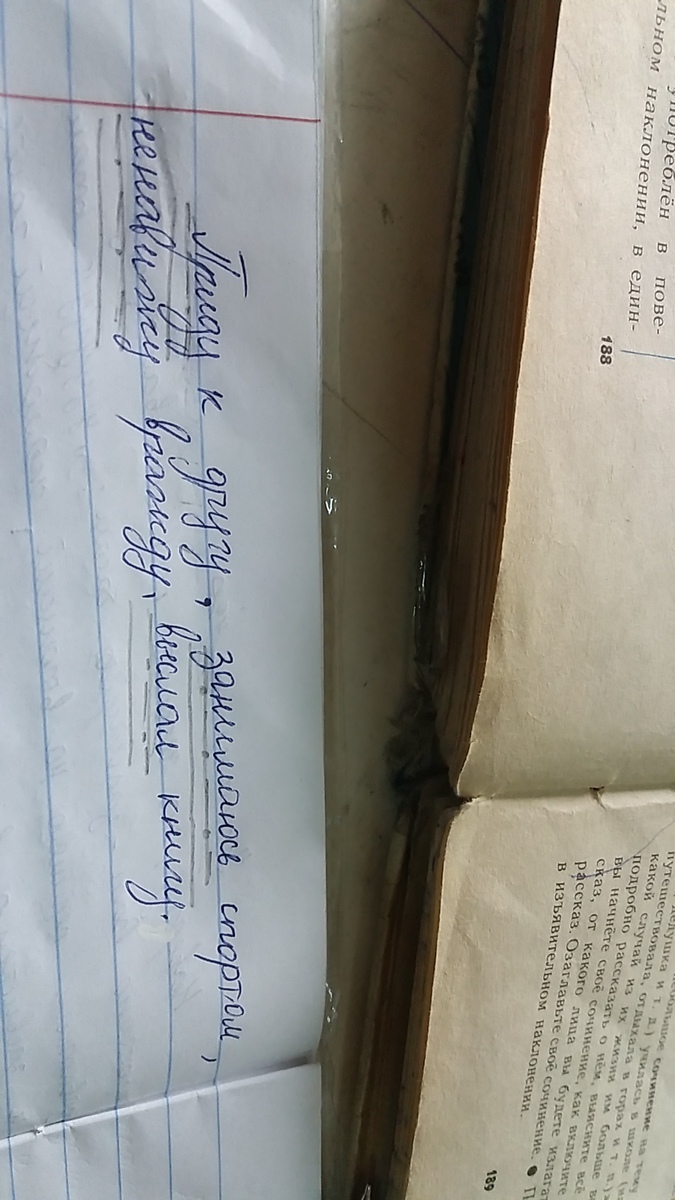 употреблён в пове-
льном наклонении, в един-
188
Приду к другу, занимаюсь спортом,
ненавижу вражду, выслал книгу.
дедушка и т. д.) училась в школе
небольшое сочинение на тему
путешествовала, отдыхала в горах и т. п.)
какой случай из их жизни им больше
подробно рассказать о нём, выясните всё
вы начнёте своё сочинение, как включите
сказ, от какого лица вы будете излага
рассказ. Озаглавьте своё сочинение. ● П
в изъявительном наклонении.
189